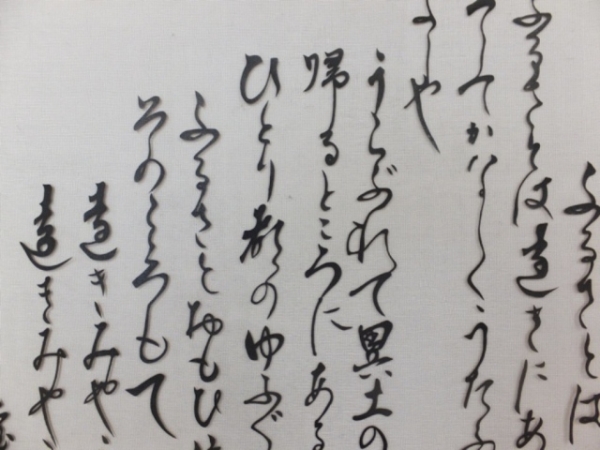 ふるさとは
ふるさとは遠きにあ
してかなしくうたふ
しや
うらぶれて異土の
帰るところにある
ひとり都のゆふぐ
ふるさとおもひ
そのこころもて
遠きみや
遠きみや